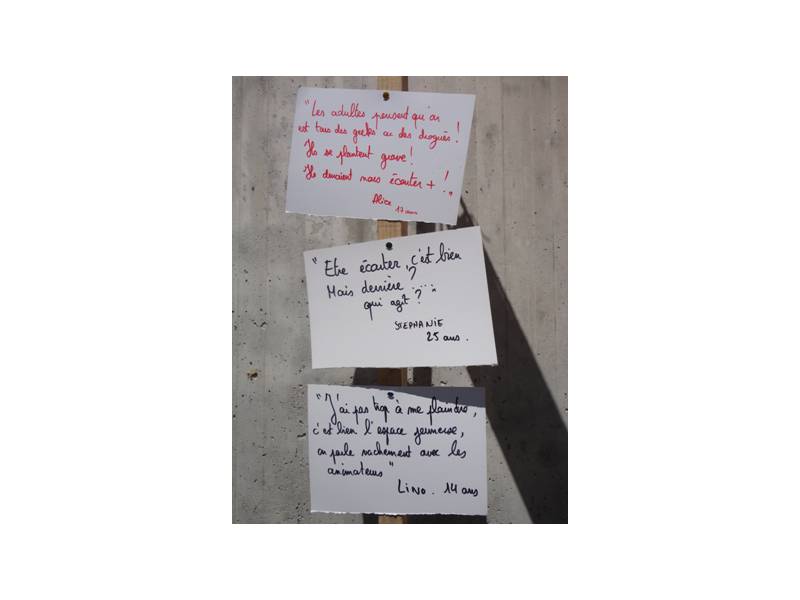 "Les adultes pensent qu'on
est tous des geeks ou des drogués !
Ils se plantent grave !
Ils devraient nous écouter + ! "
Alice
17 ans
"Etre écouter, c'est bien
Mais derrière ? ....
qui agit ? "
STEPHANIE
25 ans.
"J'ai pas trop à me plaindre,
c'est bien l'espace jeunesse,
on parle vachement avec les
animateurs"
Lino. 14 ans